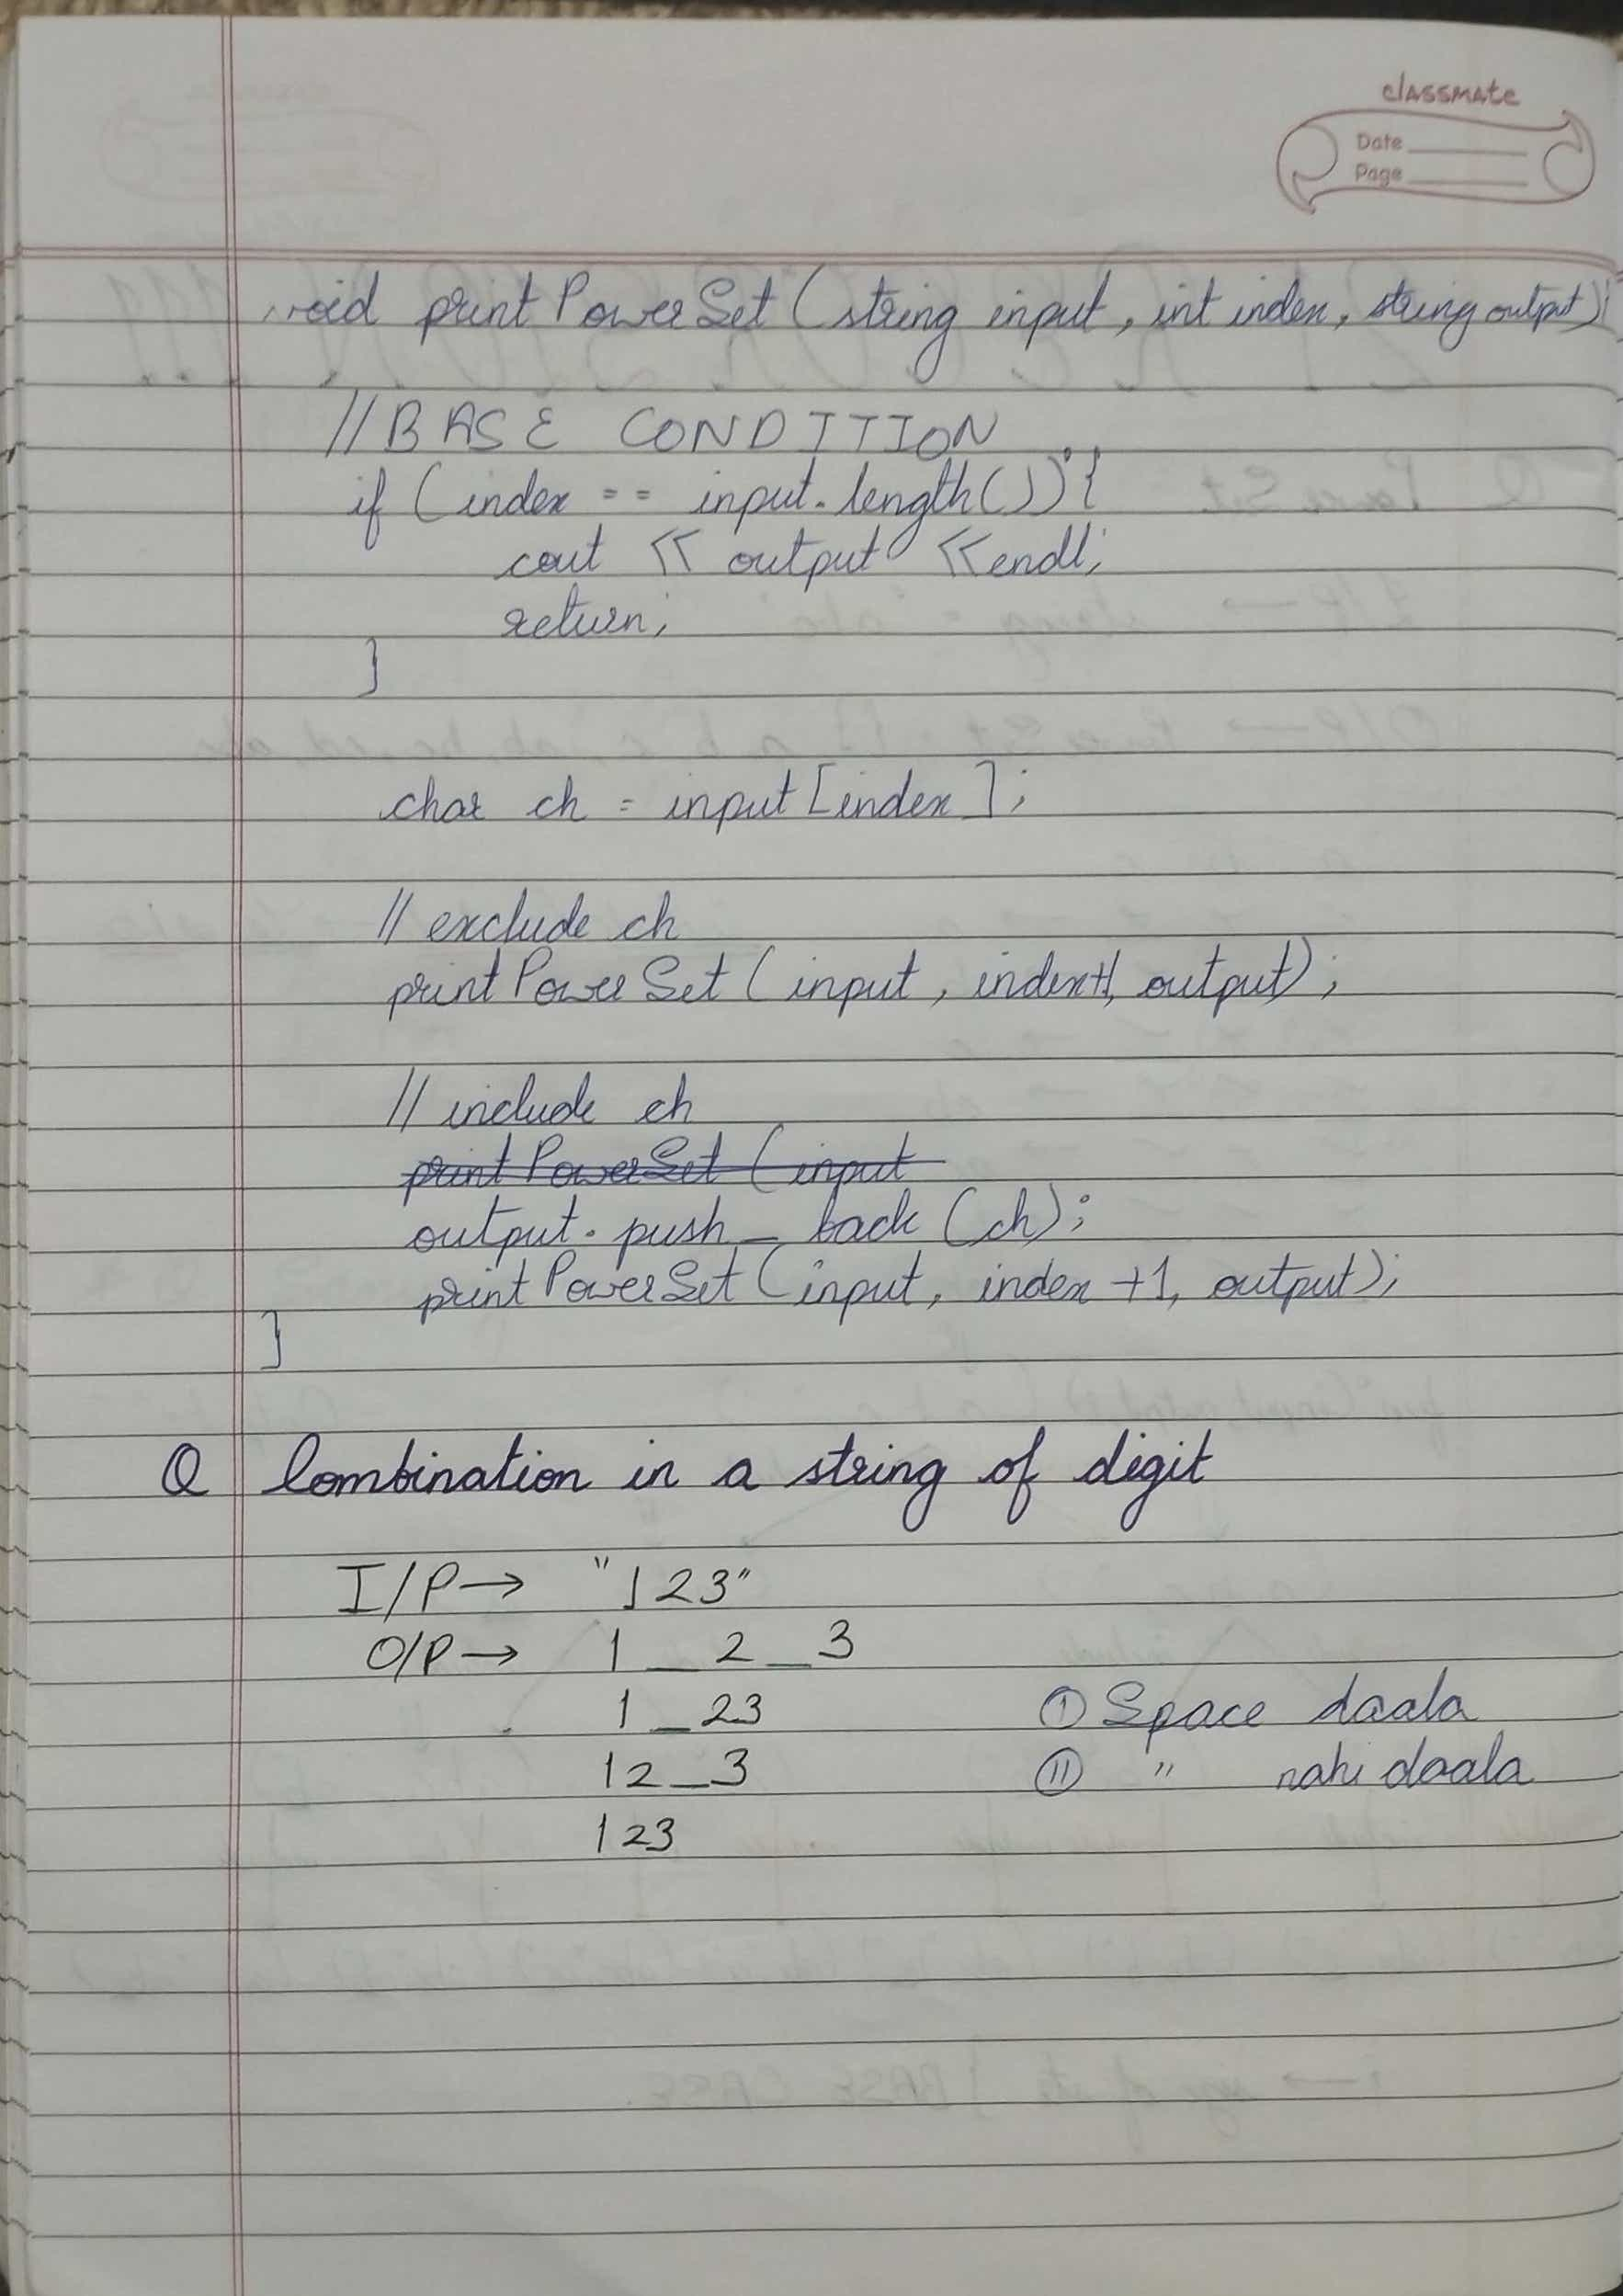 classmate
Date
Page
void printPowerSet (string input, int index, string output){
//BASE CONDITION
if (index == input.length()){
cout << output << endl;
return;
}
char ch = input[index];
// exclude ch
printPowerSet (input, index+1, output);
// include ch
printPowerSet (input
output.push_back (ch);
printPowerSet (input, index +1, output);
}
Q Combination in a string of digit
I/P → "123"
O/P → 1_2_3
1_23 ① Space daala
12_3 ⑪ " nahi daala
123